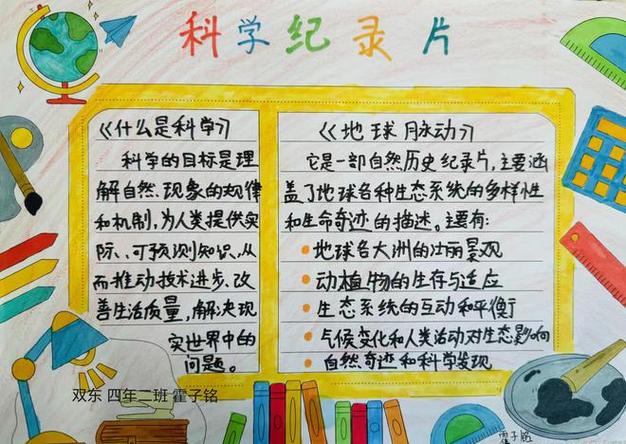 科学纪录片
《什么是科学》
科学的目标是理
解自然、现象的规律
和机制,为人类提供实
际、可预测知识、从
而推动技术进步、改
善生活质量,解决现
实世界中的
问题。
《地球脉动》
它是一部自然历史纪录片,主要涵
盖了地球各种生态系统的多样性
和生命奇迹的描述。主要有:
地球各大洲的壮丽景观
动植物的生存与适应
生态系统的互动和平衡
气候变化和人类活动对生态影响
自然奇迹和科学发现
双东 四年二班 霍子铭